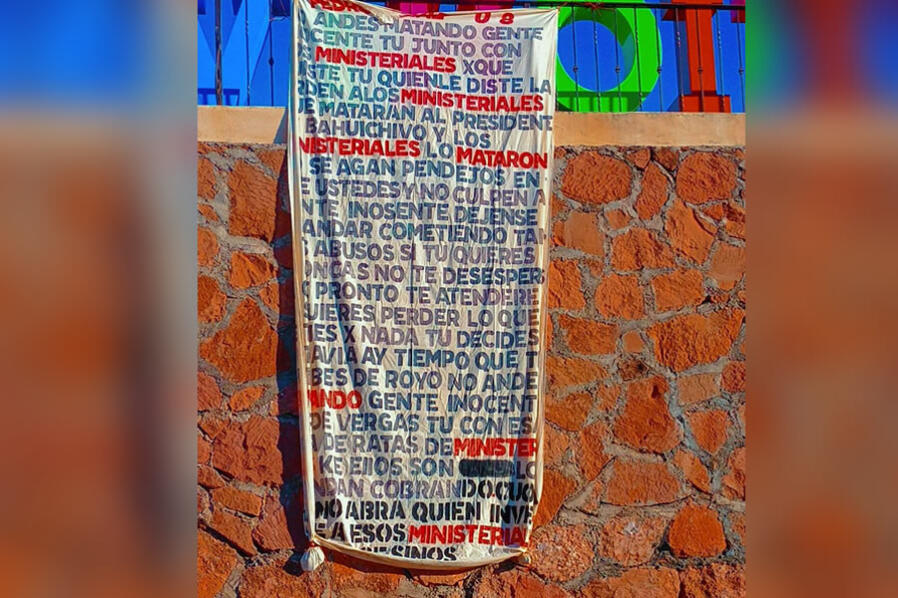 ANDES MATANDO GENTE
CENTE TU JUNTO CON
MINISTERIALES XQUE
STE TU QUIENLE DISTE LA
RDEN ALOS MINISTERIALES
E MATARAN AL PRESIDENT
BAHUICHIVO Y LOS
NISTERIALES LO MATARON
SE AGAN PENDEJOS EN
E USTEDES Y NO CULPEN A
NTE INOSENTE DEJENSE
ANDAR COMETIENDO TAN
ABUSOS SI TU QUIERES
ONGAS NO TE DESESPER
PRONTO TE ATENDERE
UIERES PERDER LO QUE
ES X NADA TU DECIDES
AVIA AY TIEMPO QUE T
BES DE ROYO NO ANDE
ANDO GENTE INOCENT
DE VERGAS TU CON ES
A DE RATAS DE MINISTER
KE EJIOS SON LO
DAN COBRANDO.CUO
NO ABRA QUIEN INVE
E A ESOS MINISTERIA
ESINOS